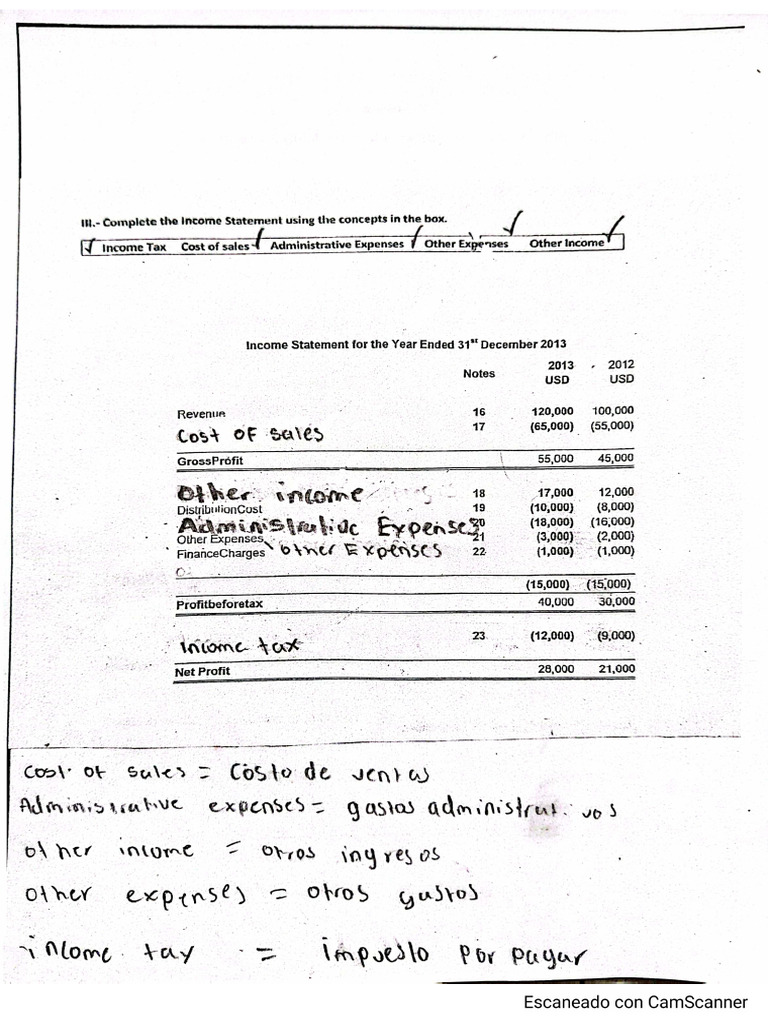 III.- Complete the Income Statement using the concepts in the box.
Income Tax Cost of sales Administrative Expenses Other Expenses Other Income
Income Statement for the Year Ended 31st December 2013
Notes 2013 USD 2012 USD
Revenue 16 120,000 100,000
Cost OF sales 17 (65,000) (55,000)
GrossProfit 55,000 45,000
Other income 18 17,000 12,000
DistributionCost 19 (10,000) (8,000)
Administrative Expenses 20 (18,000) (16,000)
Other Expenses 21 (3,000) (2,000)
FinanceCharges other Expenses 22 (1,000) (1,000)
(15,000) (15,000)
Profitbeforetax 40,000 30,000
Income tax 23 (12,000) (9,000)
Net Profit 28,000 21,000
Cost of sales = Costo de ventas
Administrative expenses = gastos administrativos
other income = otros ingresos
other expenses = otros gastos
income tax = impuesto por pagar
Escaneado con CamScanner